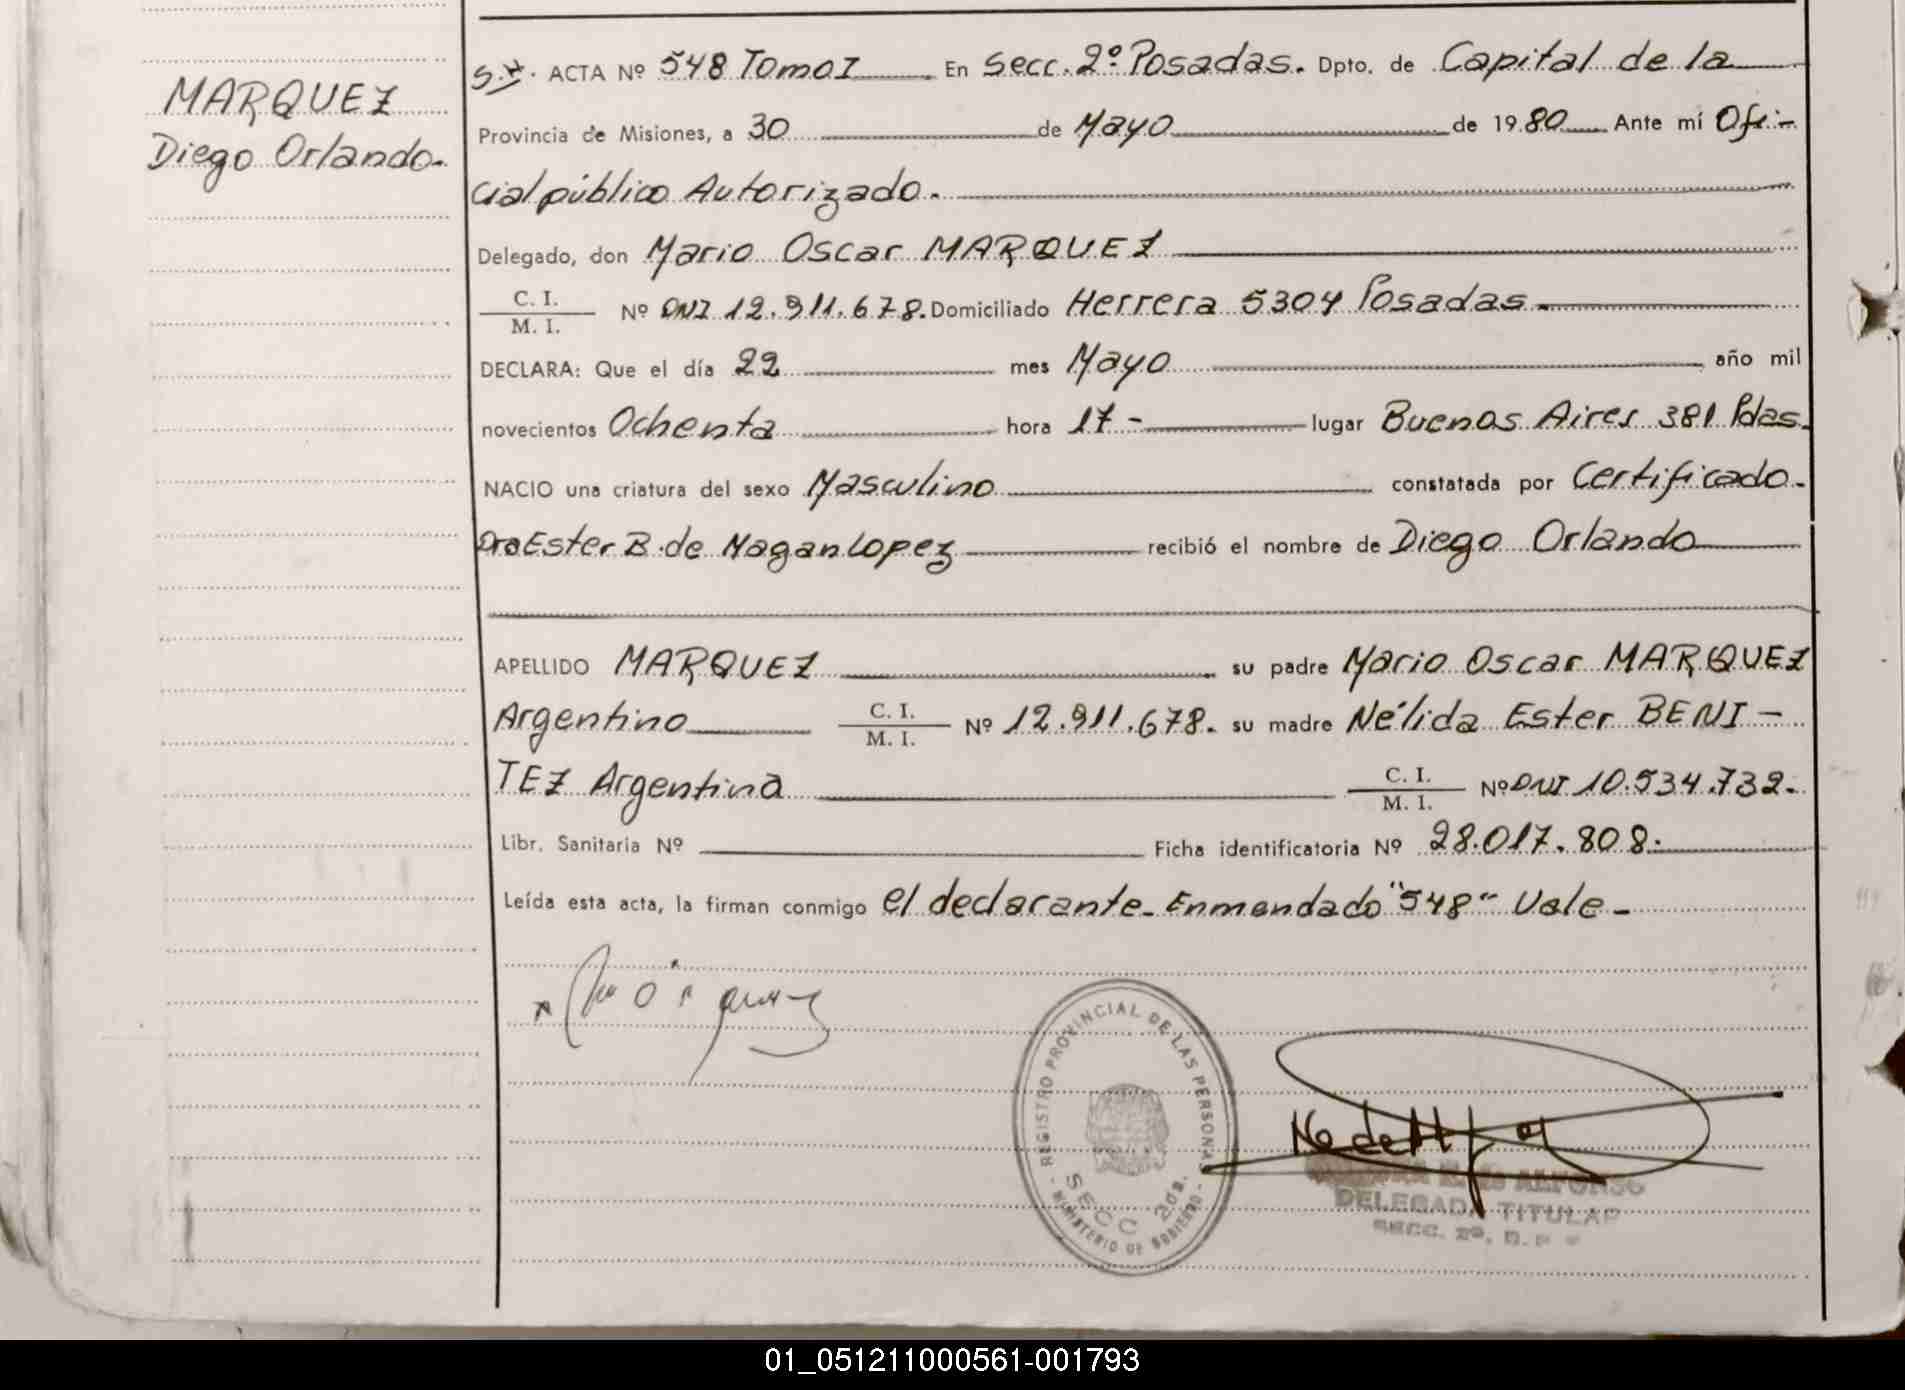 MARQUEZ
Diego Orlando.
ACTA Nº 548 Tomo I En Secc. 2º Posadas. Dpto. de Capital de la
Provincia de Misiones, a 30 de Mayo de 1980 Ante mí Ofi-
cial público Autorizado.
Delegado, don Mario Oscar MARQUEZ
C. I.
M. I. Nº DNI 12.911.678. Domiciliado Herrera 5304 Posadas.
DECLARA: Que el día 22 mes Mayo año mil
novecientos Ochenta hora 17- lugar Buenos Aires 381 Pdas.
NACIO una criatura del sexo Masculino constatada por Certificado.
Dra Ester B. de Magan Lopez recibió el nombre de Diego Orlando
APELLIDO MARQUEZ su padre Mario Oscar MARQUEZ
Argentino C. I. M. I. Nº 12.911.678. su madre Nélida Ester BENI-
TEZ Argentina C. I. M. I. Nº DNI 10.534.732.
Libr. Sanitaria Nº Ficha identificatoria Nº 28.017.808.
Leída esta acta, la firman conmigo el declarante. Enmendado "548" Vale-
REGISTRO PROVINCIAL DE LAS PERSONAS
SECC 2da.
- MINISTERIO DE GOBIERNO -
de ALFONSO
DELEGADA TITULAR
SECC. 2ª.
01_051211000561-001793